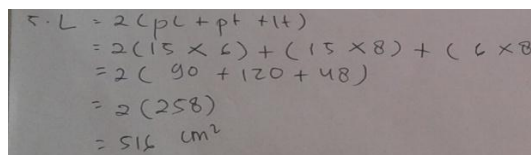 5. L = 2(pl + pt + lt)
= 2(15 × 6) + (15 × 8) + (6 × 8
= 2( 90 + 120 + 48)
= 2(258)
= 516 cm²